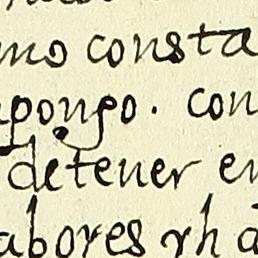 mo consta
pongo. con
detener en
abores rh a